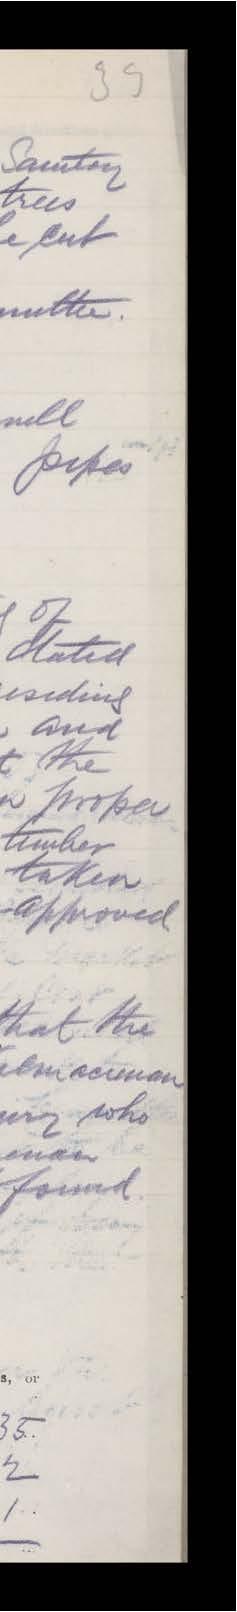 39
Sanitary
trees
e cut
mittee.
mell
pipes
g of
stated
residing
and
t the
n proper
timber
taken
approved
that the
who
found.
s, or
35..
2
1..